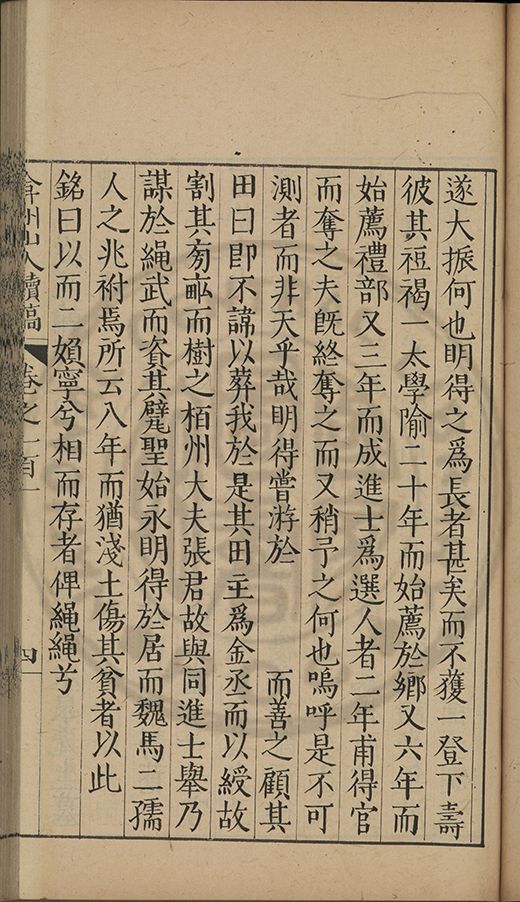 遂大振何也明得之爲長者甚矣而不獲一登下壽
彼其袒褐一太學隃二十年而始薦於鄉又六年而
始薦禮部又三年而成進士爲選人者二年甫得官
而奪之夫旣終奪之而又稍予之何也嗚呼是不可
測者而非天乎哉明得嘗游於 而善之顧其
田曰卽不諱以葬我於是其田主爲金丞而以綬故
割其旁畝而樹之栢州大夫張君故與同進士舉乃
謀於繩武而資其窆聖始永明得於居而魏馬二孺
人之兆祔焉所云八年而猶淺土傷其貧者以此
銘曰以而二嬪寧兮相而存者俾繩繩兮
弇州山人續稿 卷之一百一 四